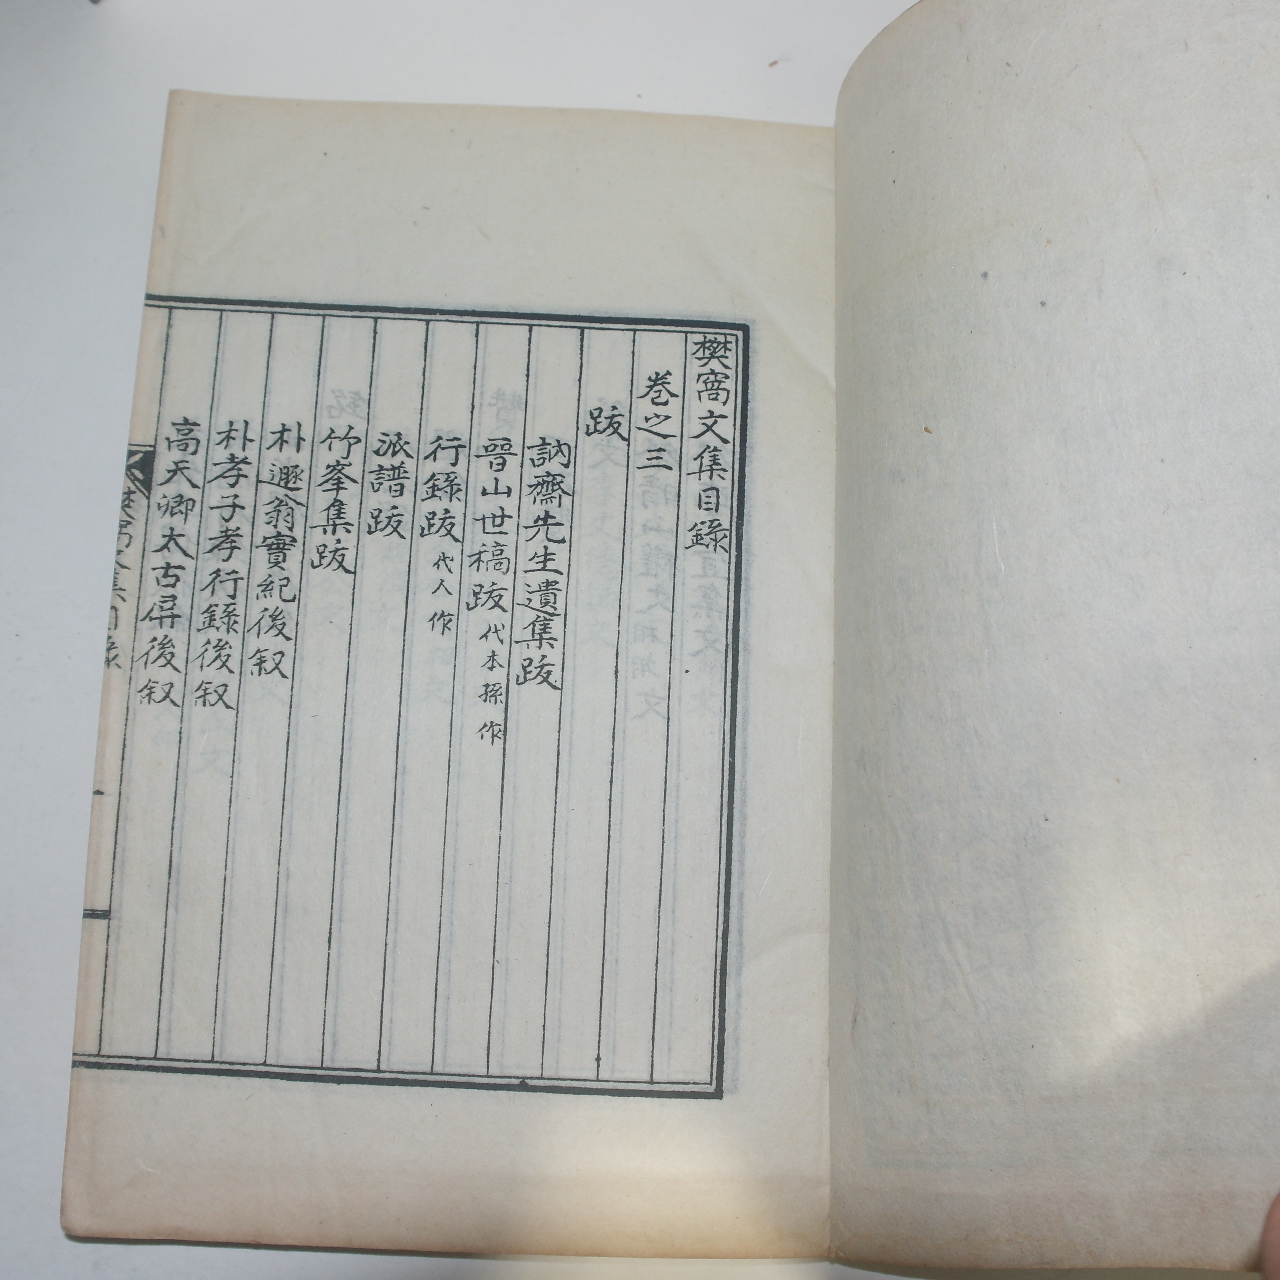 樊窩文集目錄
卷之三
跋
訥齋先生遺集跋
晉山世稿跋 代本孫作
行錄跋 代人作
派譜跋
竹峯集跋
朴遯翁實紀後叙
朴孝子孝行錄後叙
高天卿太古屏後叙
樊窩文集目錄
一